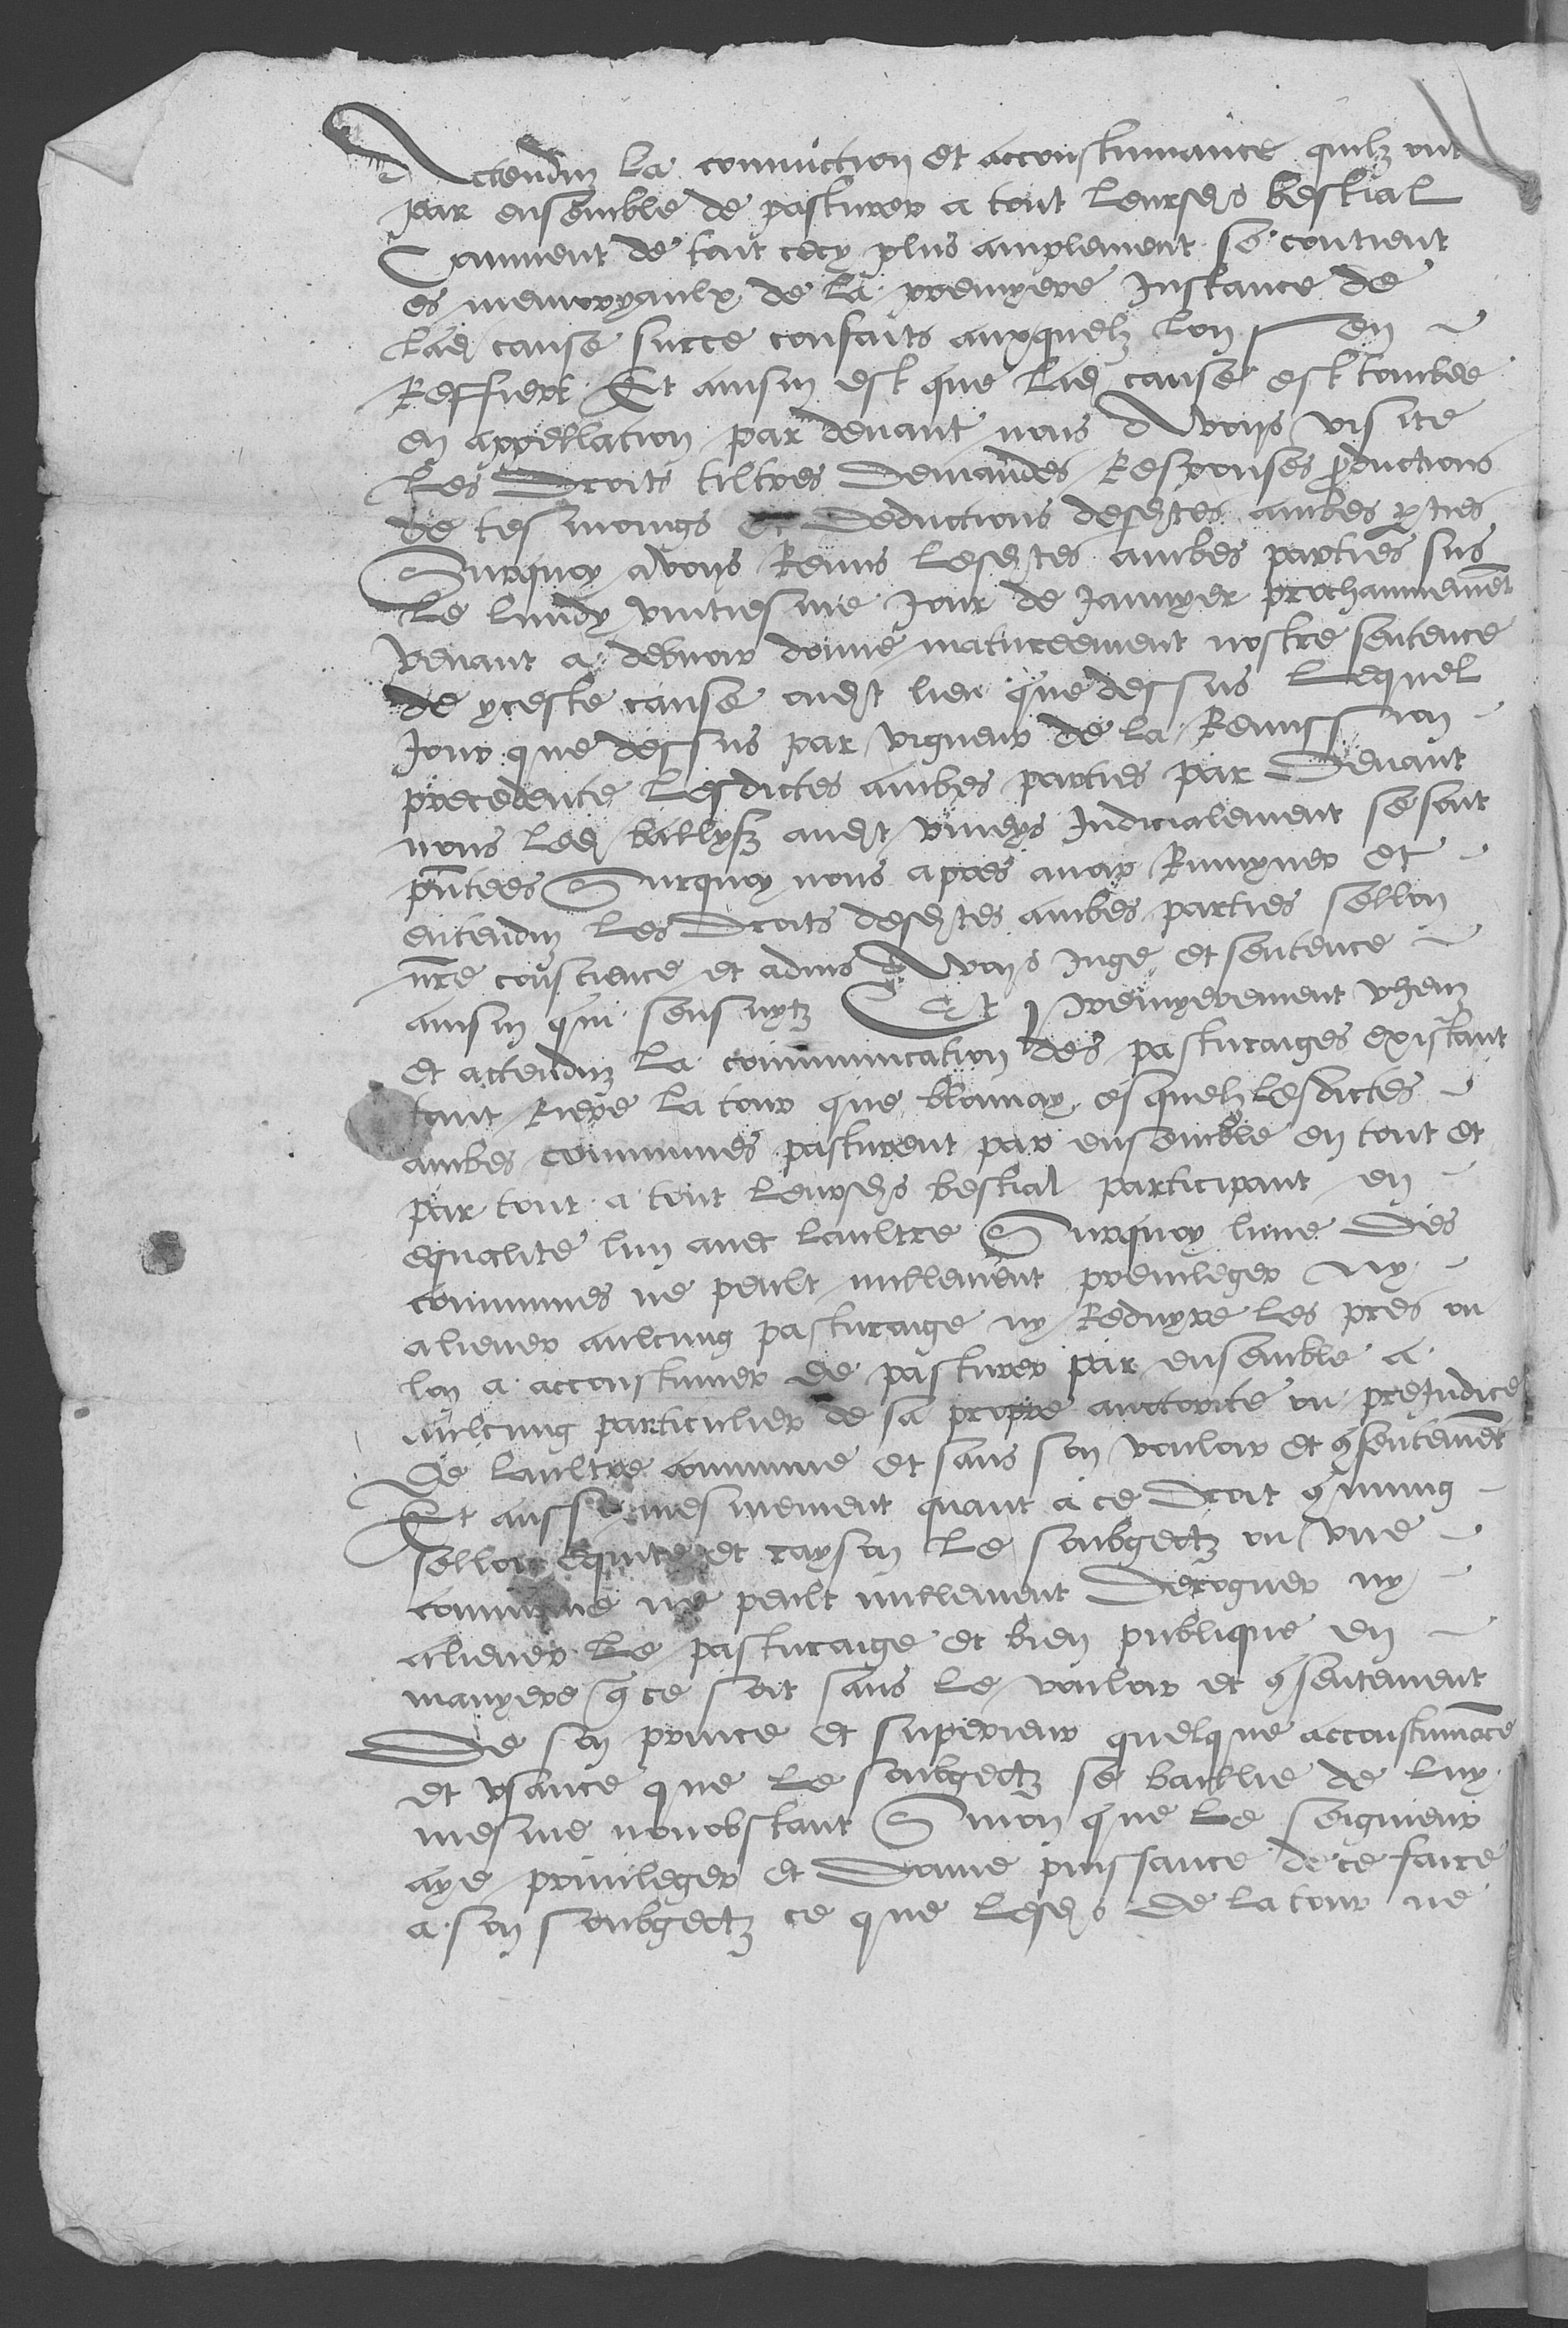 Actenduz la coniunction et accoustumance quilz ont
par ensemble de pasturer a tout leursd(it)s bestial
Comment de tout cecy plus amplement se contient
es memoryaulx de la premyere Instance de
lad(ite) cause surce confaits auxquelz lon sen
Reffiert Et ainsin est que lad(ite) cause est tombee
en appellation par deuant nous Avons visite
les Droits tiltres demandes Responses productions
de tesmoings et deductions desd(ic)tes ambes p(ar)ties
Surquoy avons Remis lesd(ic)tes ambes parties sus
le lundy vintiesme Jour de Januyer prochainnement
venant a debuoir donne maturement nostre sentence
de yceste cause aud(ic)t lieu que dessus Lequel
Jour que dessus par vigueur de la Remission
precedente lesdictes ambes parties par Deuant
nous led(it) ballyfz aud(ic)t viueys Judicialement se sont
p(rese)ntees Surquoy nous apres auoir Rumyner et
entenduz les Droits desd(ic)tes ambes parties sellon
n(ost)re conscience et aduis Avons Juge et sentence
ainsin qui sensuytz Et premyerement vheuz
et actenduz la communication des pasturaiges existant
tant Riere la tour que blonnay esquelz lesdictes
ambes communes pasturent par ensemble en tout et
par tout a tout leursd(it)s bestial participant en
equalite lun auec laultre Surquoy lune des
communes ne peult nullement preuileger ny
aliener aulcung pasturaige ny Reduyre les pres ou
lon a accoustumer de pasturer par ensemble a
aulcung particulier de sa propre auctorite ou preJudice
De laultre commune et sans son vouloir et (con)sentement
Et aussi mesmement quant a ce droit (com)mung
sellon equite et rayson le soubgectz ou vne
commune ne peult nullement Deroguer ny
aliener le pasturaige et bien publique en
manyere q(ue) ce soit sans le vouloir et (con)sentement
De son prince et superieur quelque accoustumance
et vsance que le soubgectz se baillie de luy
mesme nonobstant Sinon que le seignieur
aye priuileger et Donne puissance de ce faire
a son soubgectz ce que lesd(it)s de la tour ne